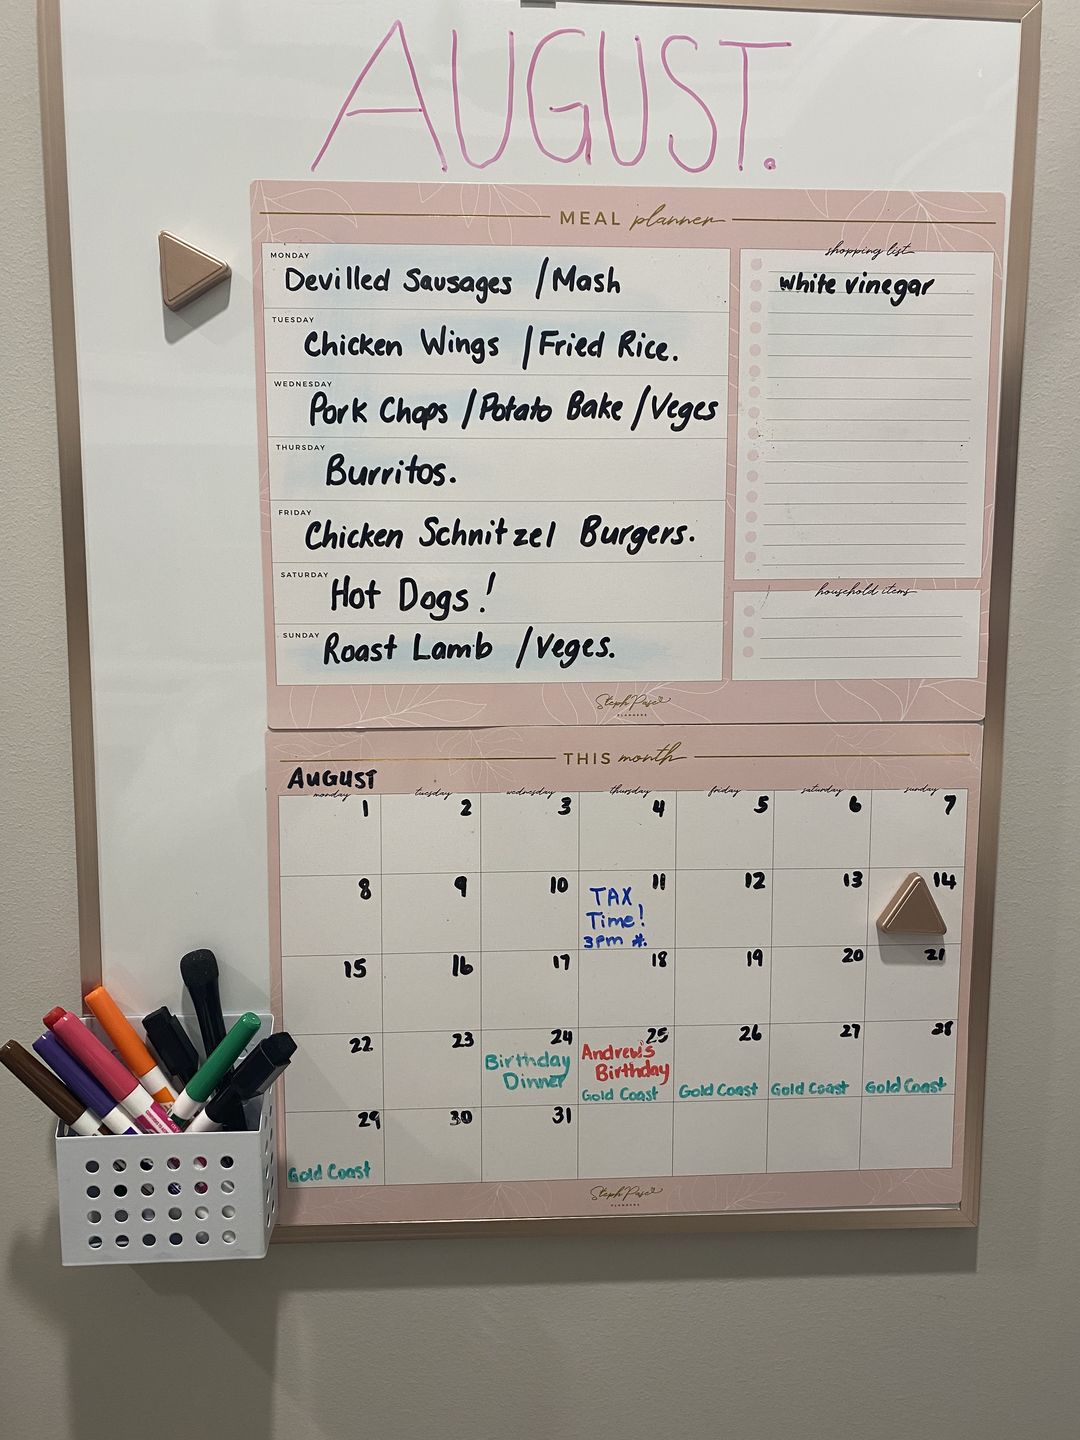 AUGUST.
MEAL planner
MONDAY
Devilled Sausages / Mash
TUESDAY
Chicken Wings / Fried Rice.
WEDNESDAY
Pork Chops / Potato Bake / Veges
THURSDAY
Burritos.
FRIDAY
Chicken Schnitzel Burgers.
SATURDAY
Hot Dogs!
SUNDAY
Roast Lamb / Veges.
shopping list
white vinegar
household items
Steph Pase
PLANNERS
THIS month
AUGUST
monday tuesday wednesday thursday friday saturday sunday
1 2 3 4 5 6 7
8 9 10 11 12 13 14
TAX
Time!
3pm *.
15 16 17 18 19 20 21
22 23 24 25 26 27 28
Birthday
Dinner
Andrew's
Birthday
Gold Coast Gold Coast Gold Coast Gold Coast
29 30 31
Gold Coast
Steph Pase
PLANNERS